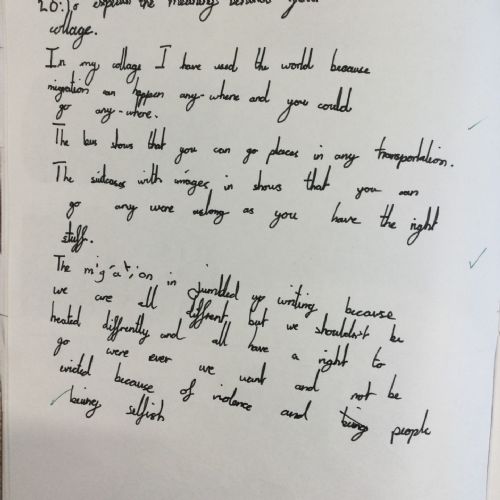 LO: To explain the meanings behind your
collage.
In my collage I have used the world because
migration can happen any-where and you could
go any-where.
The bus shows that you can go places in any transportation.
The suitcases with images in shows that you can
go any were aslong as you have the right
stuff.
The migration in jumbled up writing because
we are all diffrent but we shouldn't be
treated diffrently and all have a right to
go were ever we want and not be
evicted because of violence and people
being selfish